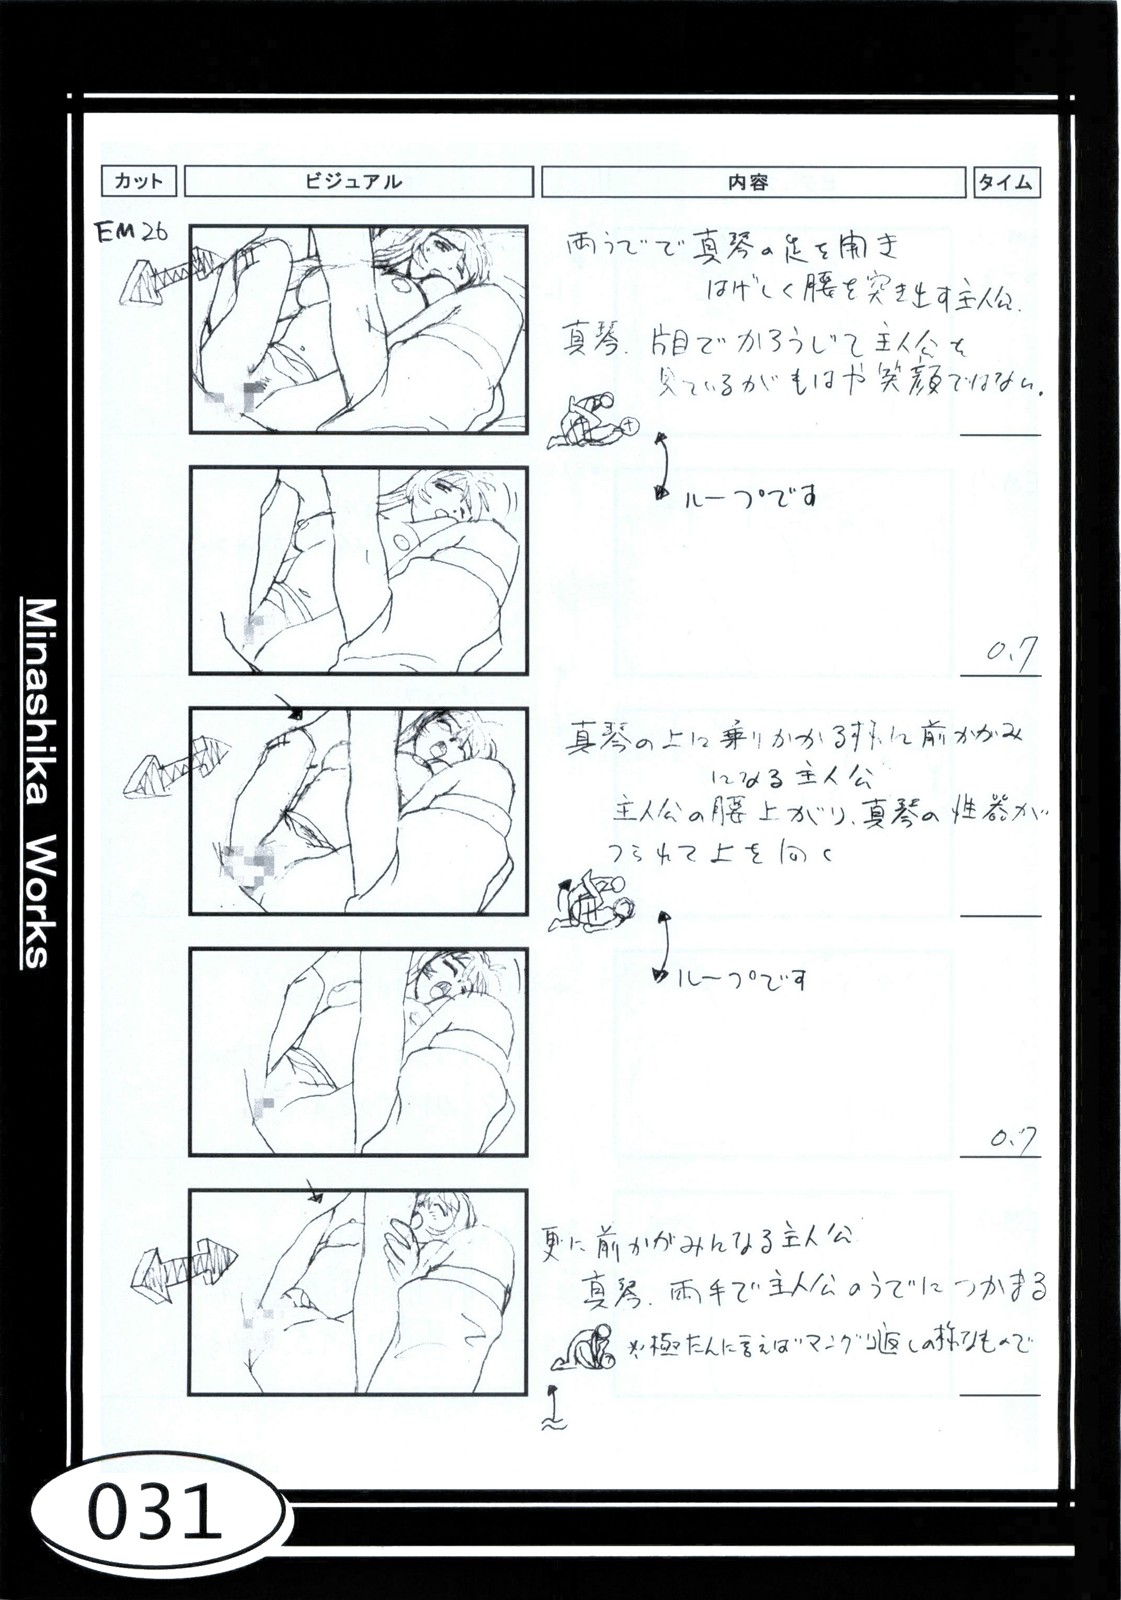 カット
ビジュアル
内容
タイム
EM26
両うでで真琴の足を開き
はげしく腰を突き出す主人公.
真琴. 片目でかろうじて主人公を
見ているがもはや笑顔ではない.
ループです
0.7
真琴の上に乗りかかる様に前かがみ
になる主人公
主人公の腰上がり、真琴の性器が
つられて上を向く
ループです
0.7
更に前かがみんなる主人公
真琴. 両手で主人公のうでにつかまる
※極たんに言えばマングリ返しの様なもので
Minashika Works
031